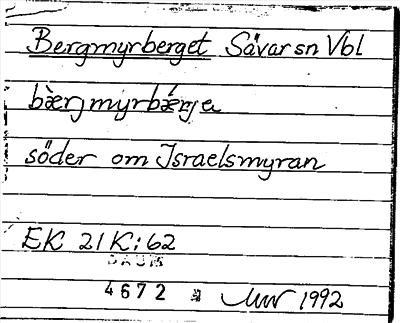 Bergmyrberget Sävar sn Vbl
bæ̀rjmyrbǽrja
söder om Israelsmyran
EK 21K:62
DAUM
4672 a 1992